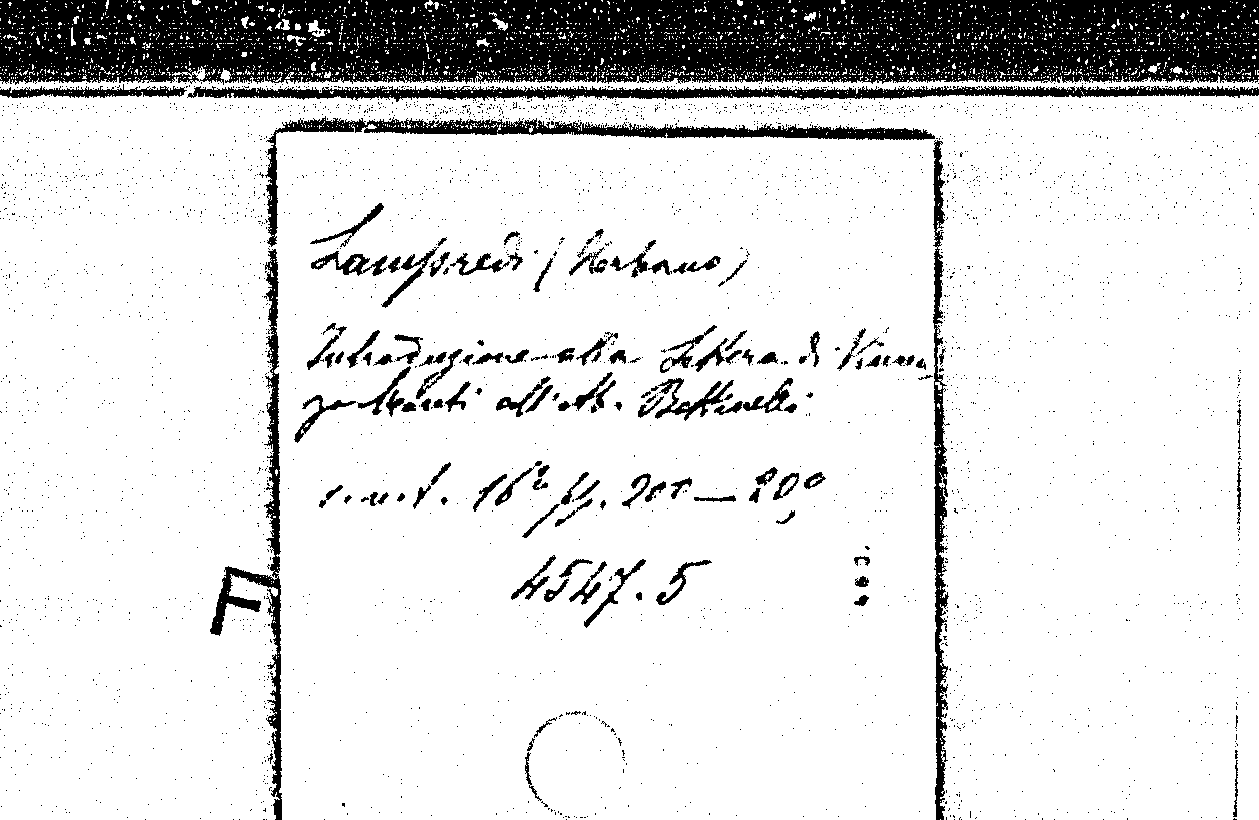 Lampredi (Urbano)
Introduzione alla Lettera di Vincen
zo Monti all'ab. Bettinelli
s.n.t. 16° pp. 200 — 20
4547.5
F